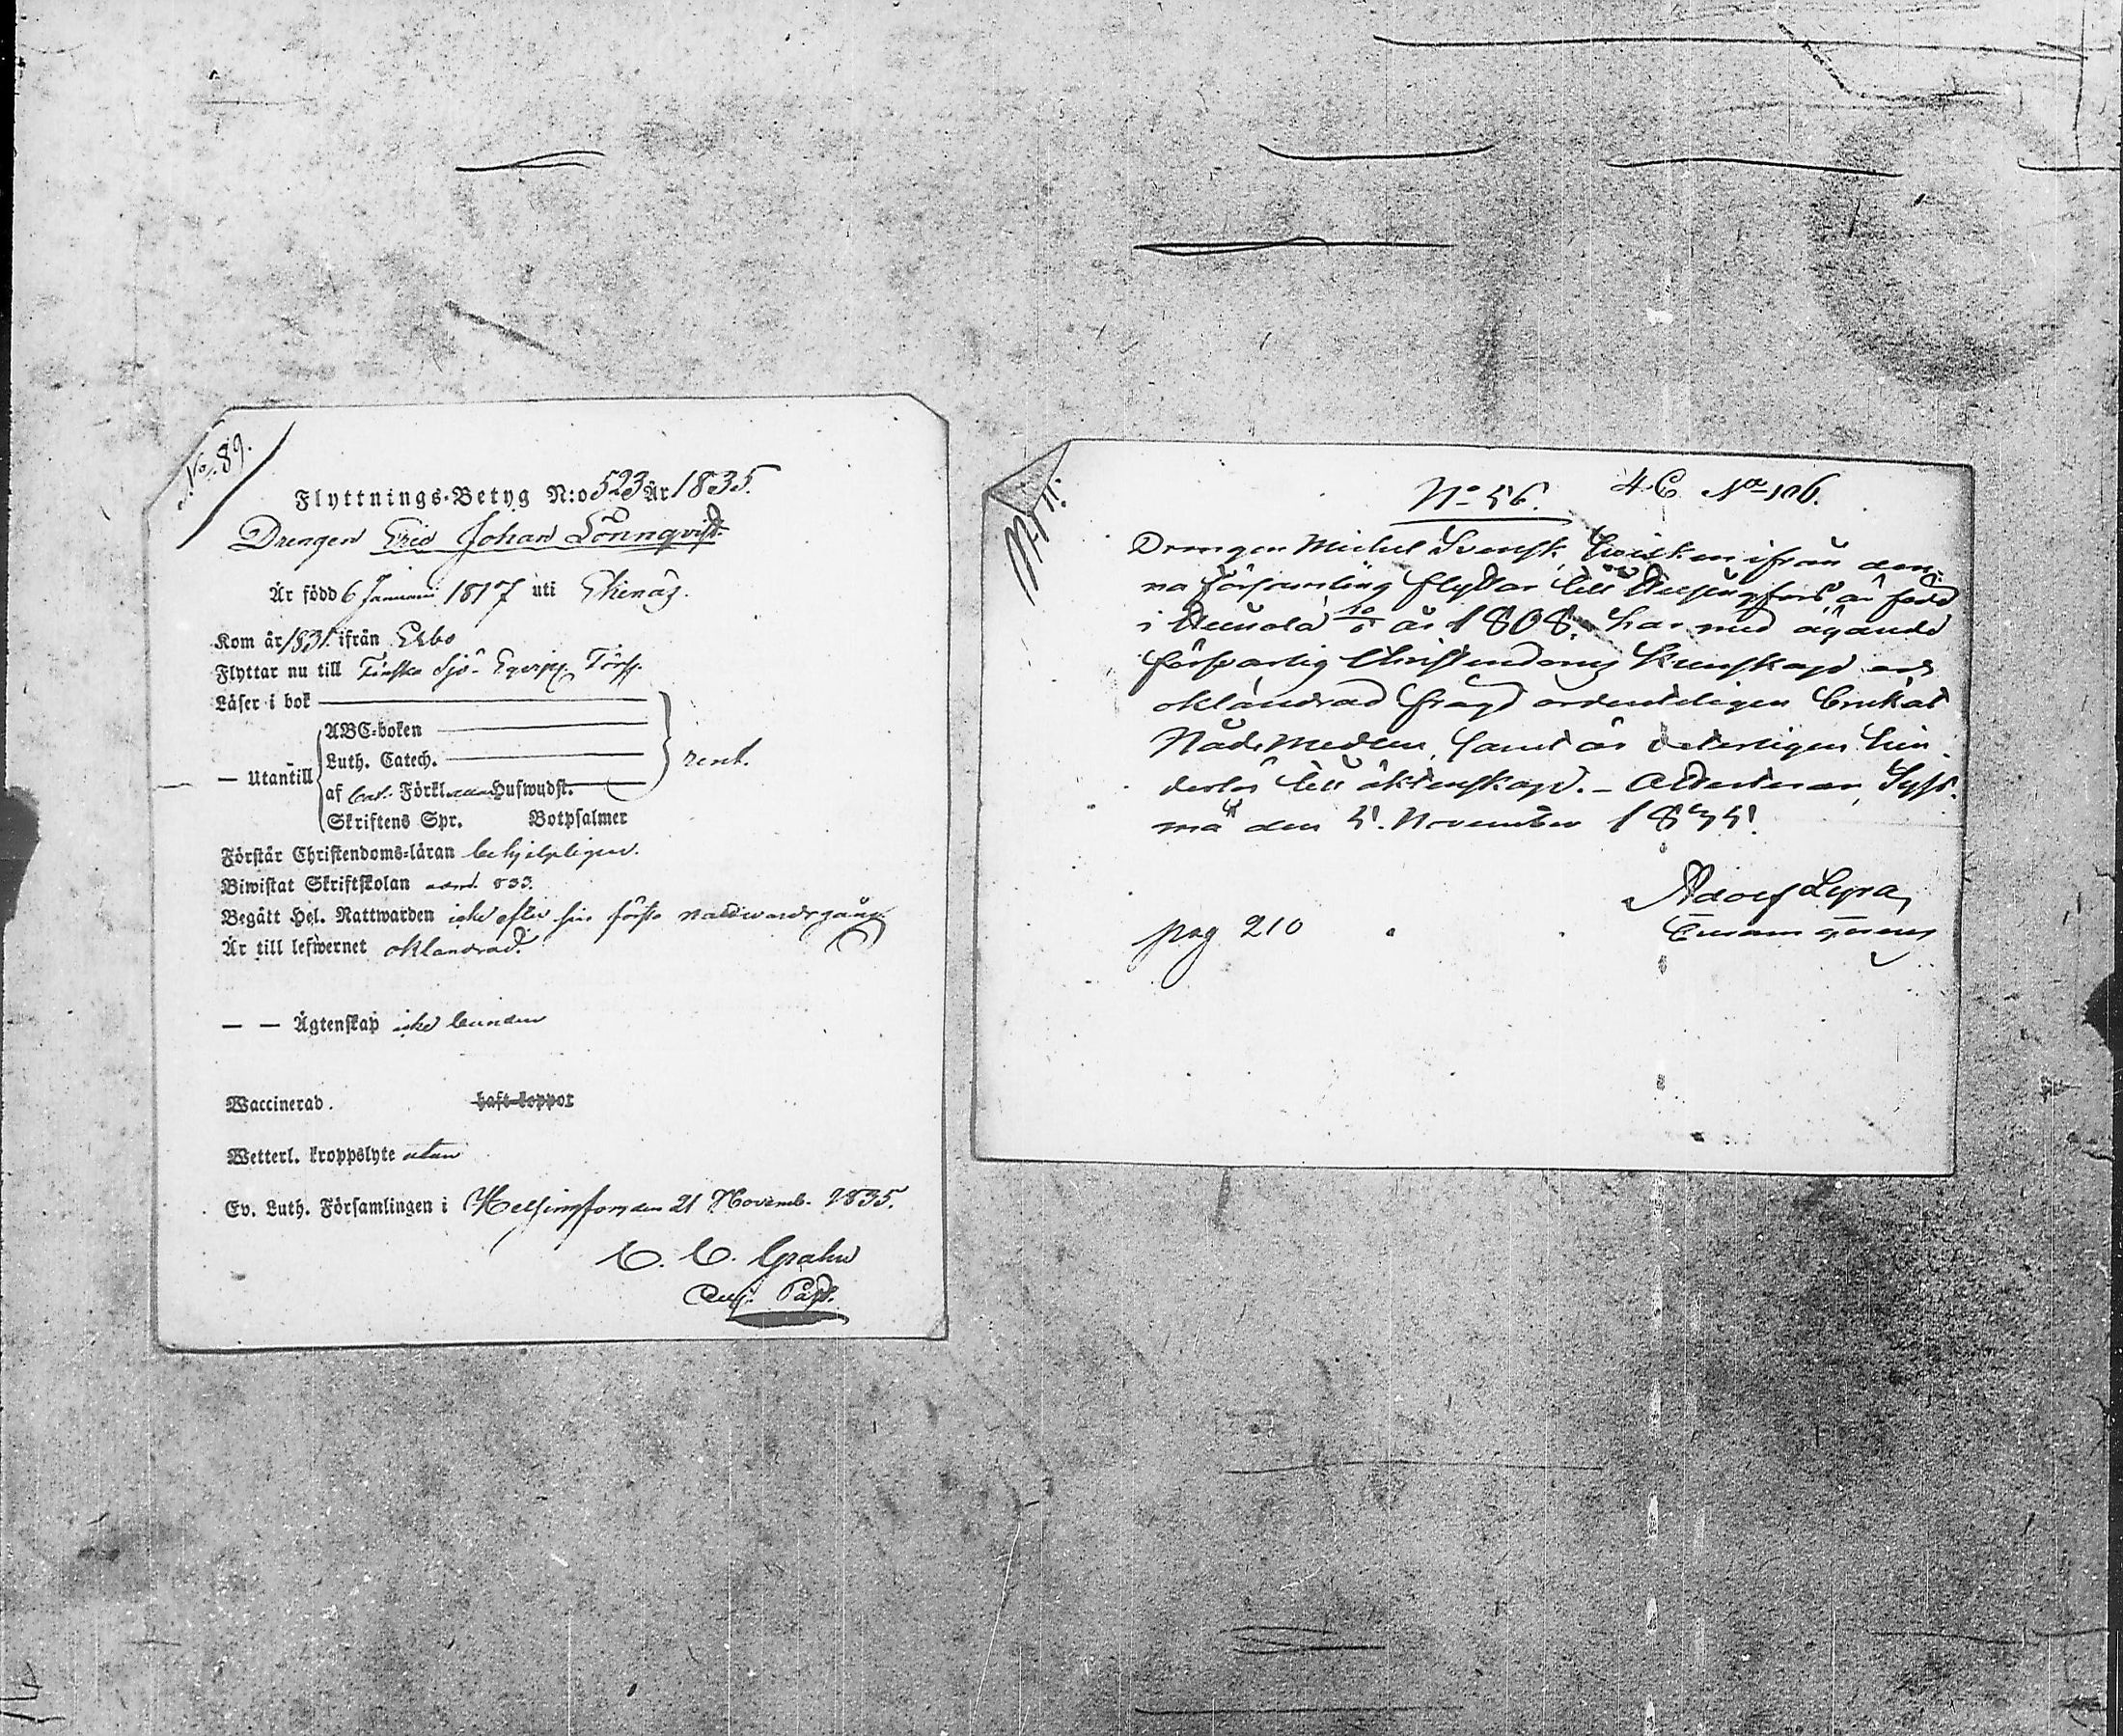 No. 89.
Flyttnings-Betyg N:o 523 År 1835.
Drengen Eric Johan Lönnqvist.
Är född 6 Januari 1817 uti Ekenäs.
Kom år 1831 ifrån Esbo
Flyttar nu till Finska Sjö-Equipp.
Läser i bok
— Utantill
ABC-boken
Luth. Catech.
af Förkl. Hufwudst.
Skriftens Spr. Botpsalmer
rent.
Förstår Christendoms-läran behjelpligen.
Biwistat Skriftskolan 833.
Begått Hel. Nattwarden icke efter sin första nattwardsgång
Är till lefwernet oklandrad.
— — Ägtenskap icke bunden
Waccinerad. haft koppor
Wetterl. kroppslyte utan
Ev. Luth. Församlingen i Helsingfors den 21 Novemb. 1835.
C. C. Grahn
Past.
N:o 56. 4.C. No 106.
Drengen Michel Svensk, ifrån den-
na församling flyttar till Helsingfors, är född
i år 1808. har med ägande
försvarlig Christendoms Kunskap och
oklandrad frägd ordenteligen brukat
Nådemedlen, samt är veterligen hin-
derlös till äktenskap. — Attesterar, Sys-
mä den 5. November 1835.
Adolf Lyra,
pag 210